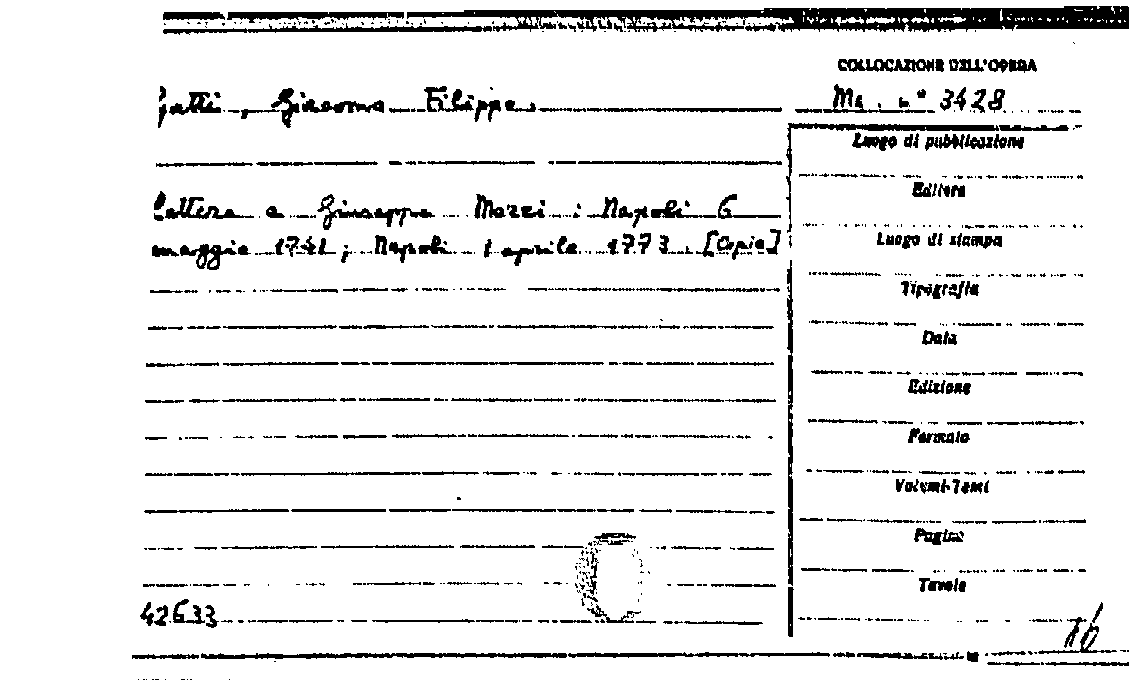 COLLOCAZIONE DELL'OPERA
Gatti, Giacomo Filippo.
Ms. n° 3428
Luogo di pubblicazione
Editore
Lettera a Giuseppe Mozzi: Napoli 6
maggio 1741; Napoli 1 aprile 1773. [Copia]
Luogo di stampa
Tipografia
Data
Edizione
Formato
Volumi-Tomi
Pagine
Tavole
42633